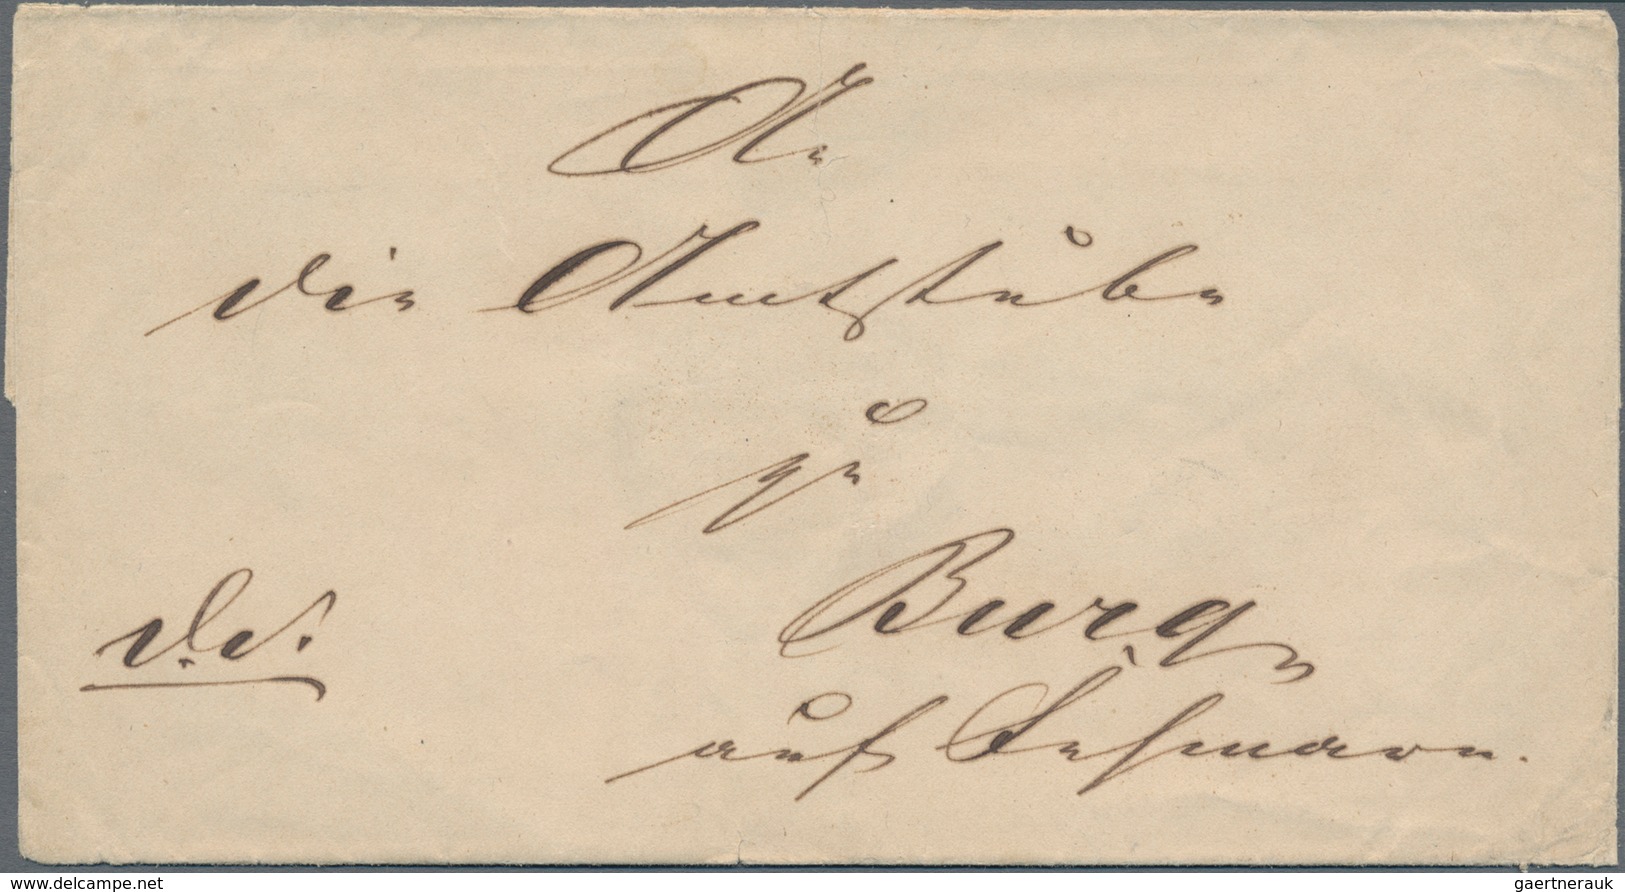 An
die Amtstube
zu
Burg
auf Fehmarn.
d. d.
www.delcampe.net
gaertnerauk